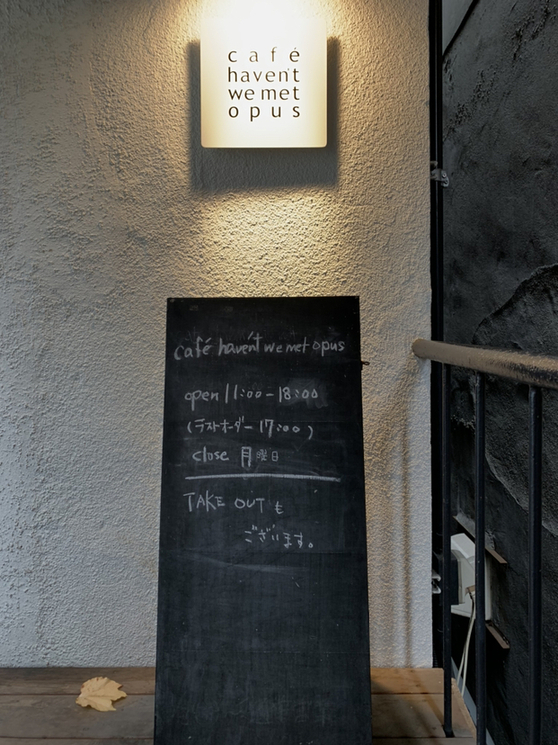 café
haven't
we met
opus
café haven't we met opus
open 11:00-18:00
(ラストオーダー 17:00)
close 月曜日
TAKE OUT も
ございます。